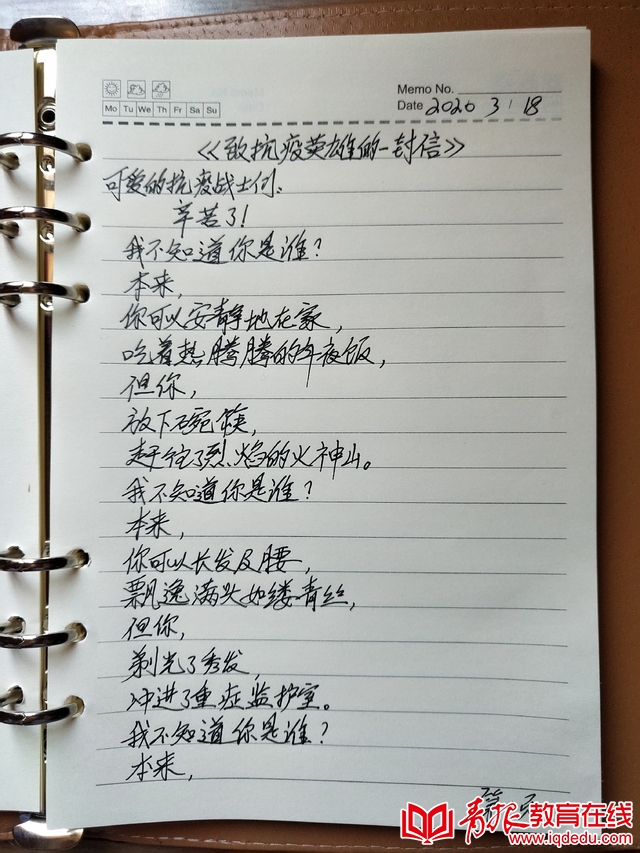 Memo No.
Mo Tu We Th Fr Sa Su
Date 2020 3 / 18
《致抗疫英雄的一封信》
可爱的抗疫战士们：
辛苦了！
我不知道你是谁？
本来，
你可以安静地在家，
吃着热腾腾的年夜饭，
但你，
放下碗筷，
赶往了烈焰的火神山。
我不知道你是谁？
本来，
你可以长发及腰，
飘逸满头如缕青丝，
但你，
剃光了秀发，
冲进了重症监护室。
我不知道你是谁？
本来，
第
青报教育在线
www.iqdedu.com